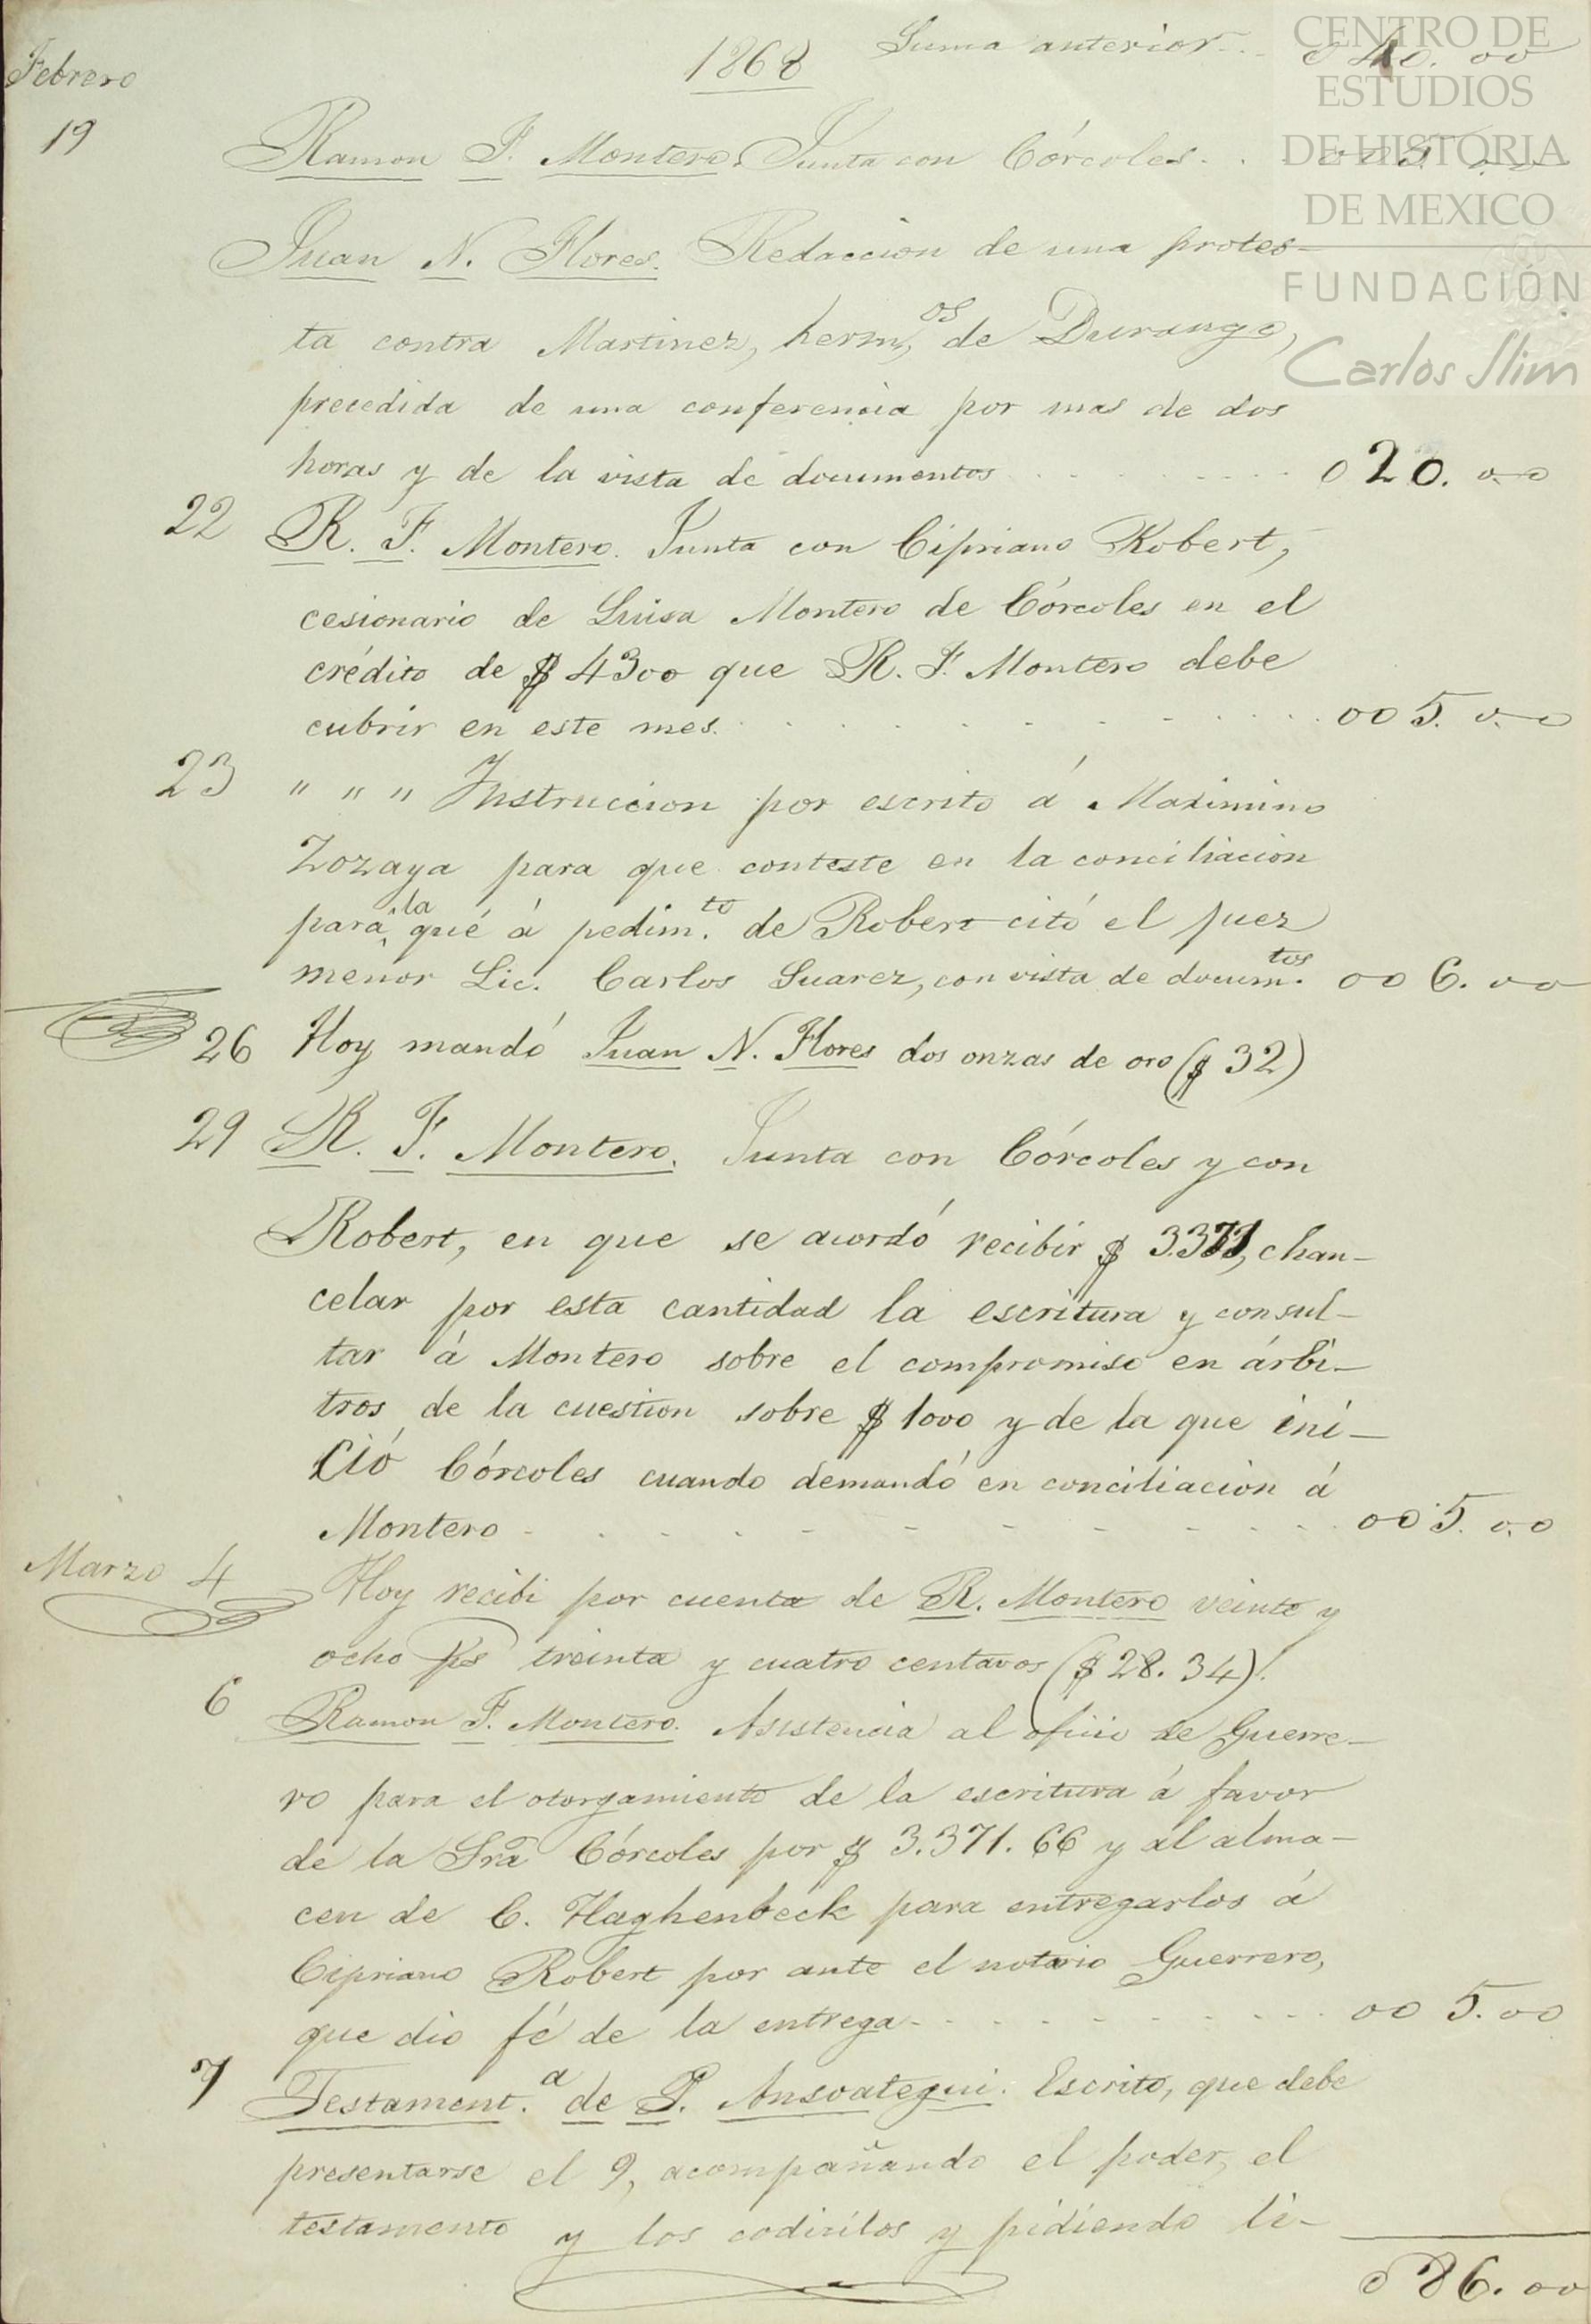 Febrero
1868
Suma anterior . . 0 40. 00
19
Ramon F. Montero. Junta con Córcoles . . 00 5. 00
Juan N. Flores. Redaccion de una protes-
ta contra Martinez, herm.os de Durango,
precedida de una conferencia por mas de dos
horas y de la vista de documentos . . . . . . . 0 20. 00
22 R. F. Montero. Junta con Cipriano Robert,
cesionario de Luisa Montero de Córcoles en el
crédito de $ 4300 que R. F. Montero debe
cubrir en este mes. . . . . . . . . . 00 5. 00
23 " " " Instruccion por escrito á Maximino
Zozaya para que conteste en la conciliacion
para la qué á pedim.to de Robert citó el juez
menor Lic. Carlos Suarez, con vista de docum.tos 00 6. 00
26 Hoy mandó Juan N. Flores dos onzas de oro ($ 32)
29 R. F. Montero. Junta con Córcoles y con
Robert, en que se acordó recibir $ 3.371, chan-
celar por esta cantidad la escritura y consul-
tar á Montero sobre el compromiso en árbi-
tros de la cuestion sobre $ 1000 y de la que ini-
ció Córcoles cuando demandó en conciliacion á
Montero . . . . . . . . . . 00 5. 00
Marzo 4 Hoy recibi por cuenta de R. Montero veinte y
ocho ps treinta y cuatro centavos ($ 28. 34).
6 Ramon F. Montero. Asistencia al oficio de Guerre-
ro para el otorgamiento de la escritura á favor
de la Sra Córcoles por $ 3.371. 66 y al alma-
cen de C. Haghenbeck para entregarlos á
Cipriano Robert por ante el notario Guerrero,
que dio fé de la entrega . . . . . . . . 00 5. 00
7 Testament.a de P. Ansoategui. Escrito, que debe
presentarse el 9, acompañando el poder, el
testamento y los codicilos y pidiendo li-
0 86. 00
CENTRO DE
ESTUDIOS
DE HISTORIA
DE MEXICO
FUNDACIÓN
Carlos Slim